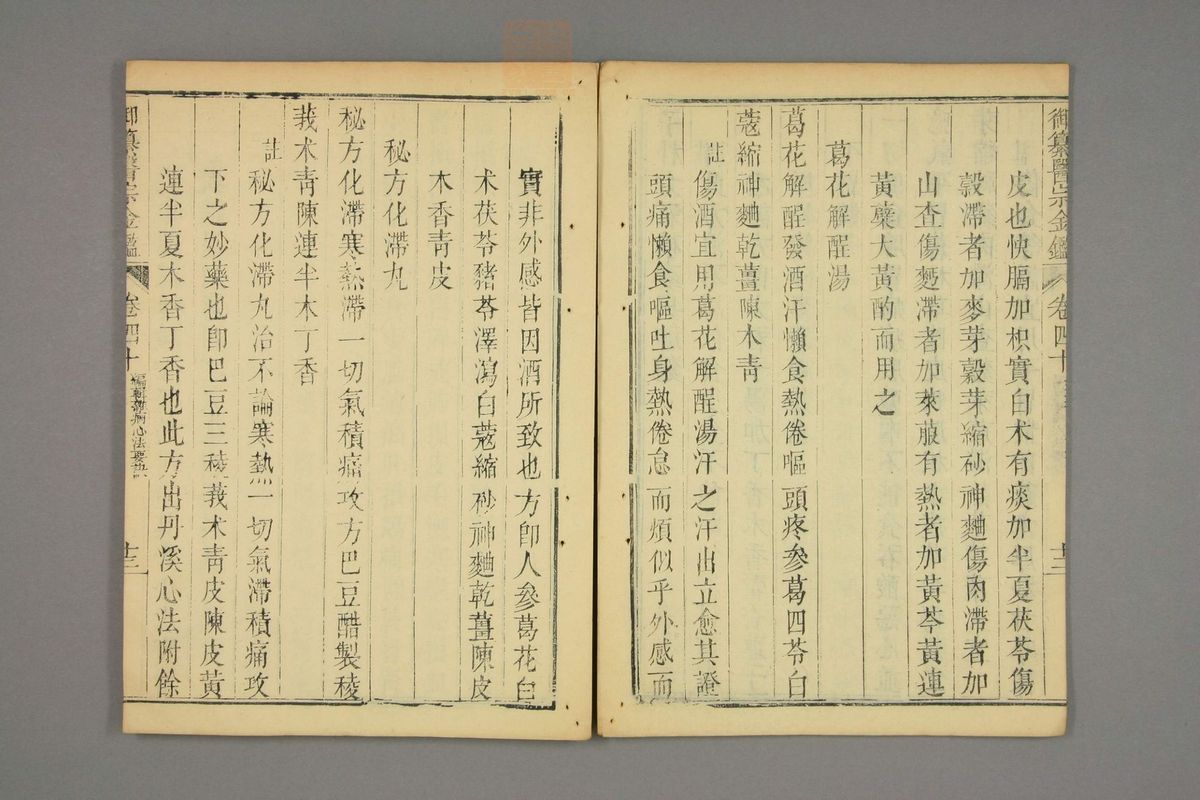 御纂醫宗金鑑 卷四十 十三
皮也快膈加枳實白术有痰加半夏茯苓傷
穀滯者加麥芽穀芽縮砂神麯傷肉滯者加
山查傷麪滯者加萊菔有熱者加黃芩黃連
黃蘗大黃酌而用之
葛花解酲湯
葛花解酲發酒汗懶食熱倦嘔頭疼參葛四苓白
蔻縮神麯乾薑陳木青
註傷酒宜用葛花解酲湯汗之汗出立愈其證
頭痛懶食嘔吐身熱倦怠而煩似乎外感而
實非外感皆因酒所致也方卽人參葛花白
术茯苓豬苓澤瀉白蔻縮砂神麯乾薑陳皮
木香青皮
秘方化滯丸
秘方化滯寒熱滯一切氣積痛攻方巴豆醋製稜
莪术青陳連半木丁香
註秘方化滯丸治不論寒熱一切氣滯積痛攻
下之妙藥也卽巴豆三稜莪术青皮陳皮黃
連半夏木香丁香也此方出丹溪心法附餘
御纂醫宗金鑑 卷四十 編輯雜病心法要訣 十三